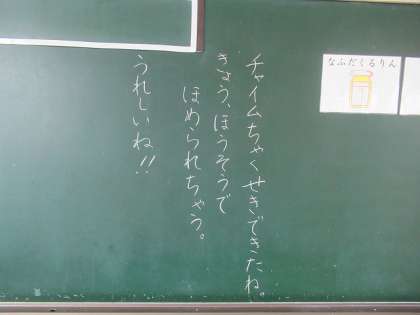 チャイムちゃくせきできたね。
きょう、ほうそうで
ほめられちゃう。
うれしいね!!
なふだくるりん